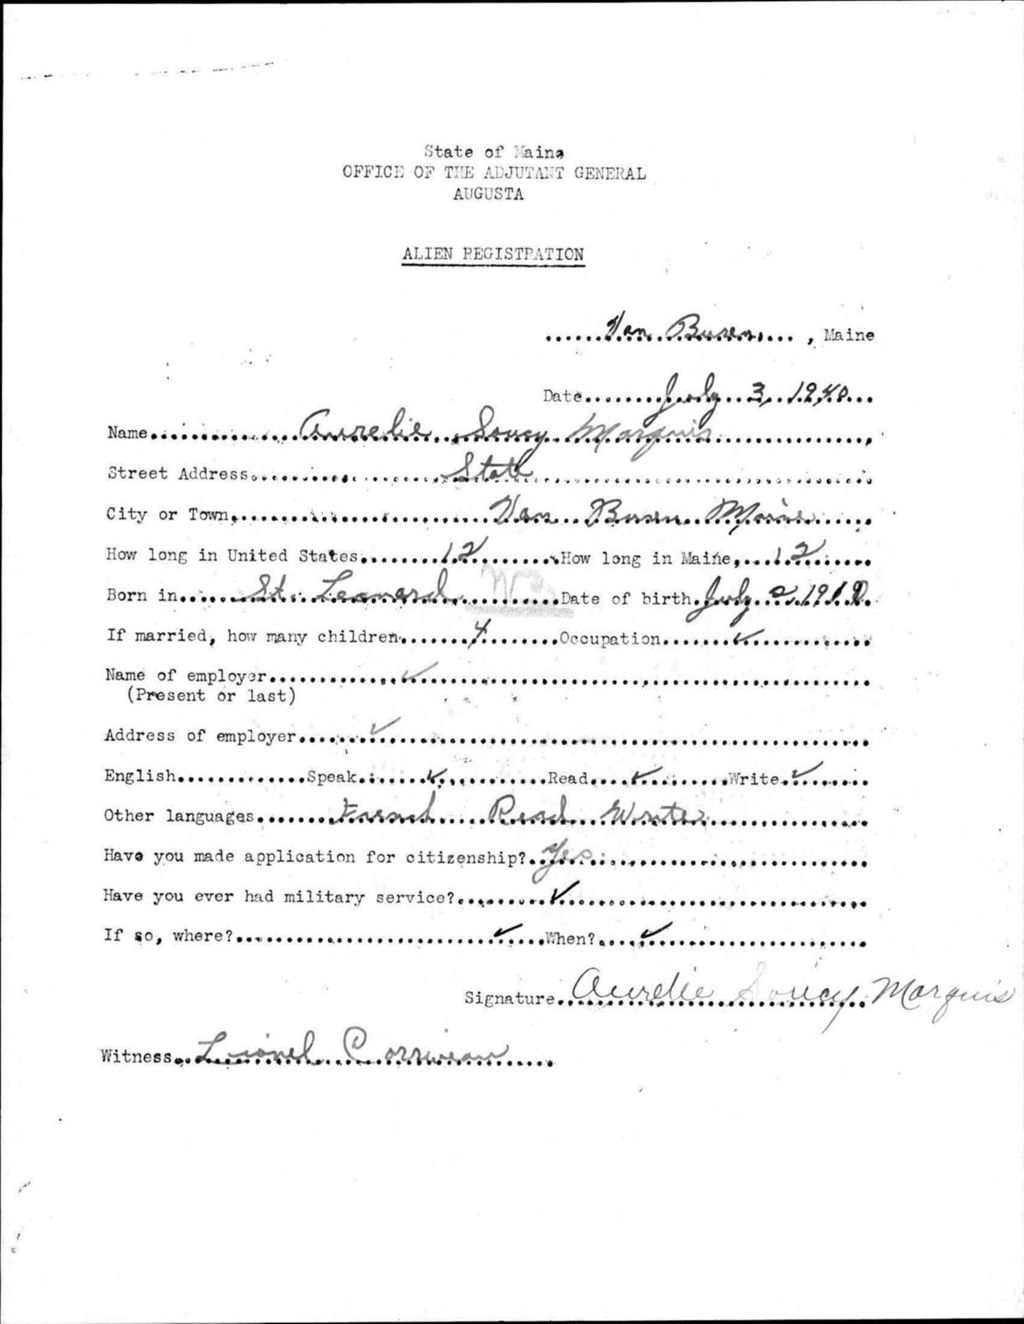 State of Maine
OFFICE OF THE ADJUTANT GENERAL
AUGUSTA
ALIEN REGISTRATION
Van Buren, Maine
Date July 3, 1940
Name Aurelie Soucy Marquis
Street Address State
City or Town Van Buren Maine
How long in United States 12 How long in Maine 12
Born in St. Leonard NB Date of birth July 2 191
If married, how many children 4 Occupation ✓
Name of employer ✓
(Present or last)
Address of employer ✓
English Speak ✓ Read ✓ Write ✓
Other languages French Read Write
Have you made application for citizenship? Yes
Have you ever had military service? ✓
If so, where? ✓ When? ✓
Signature Aurelie Soucy Marquis
Witness Lionel Corriveau